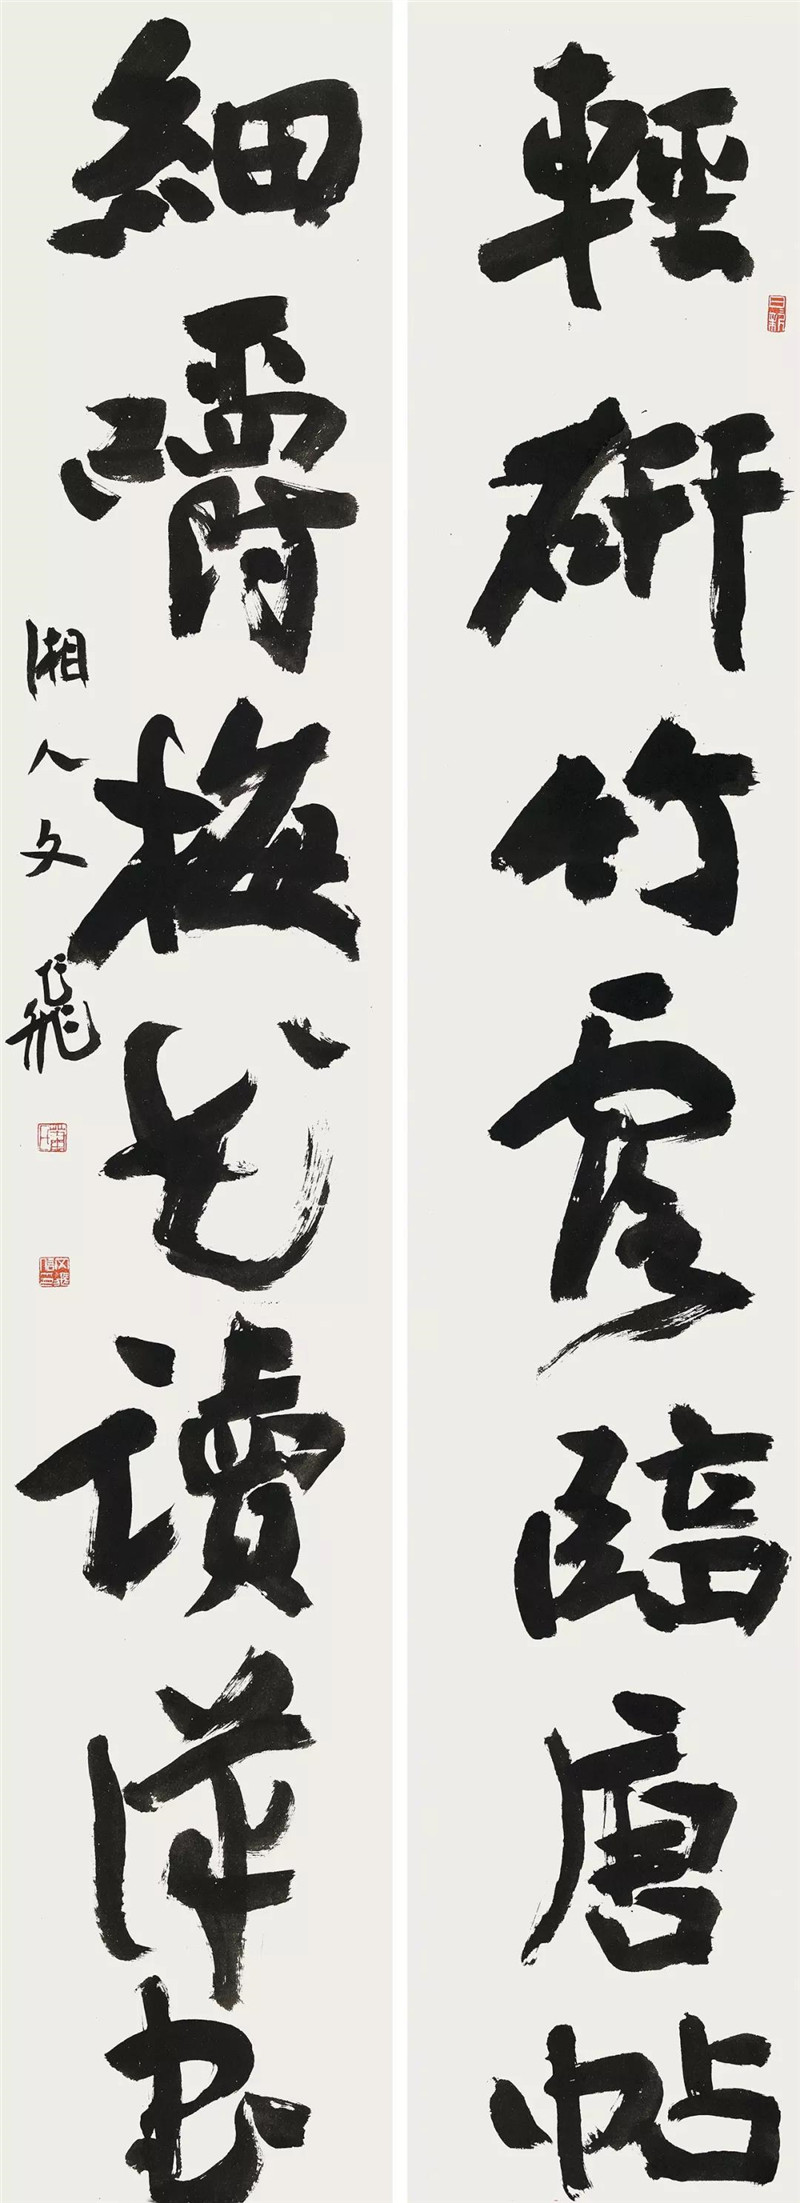 輕研竹露臨唐帖
日新
細嚼梅花讀漢書
湘人文飛